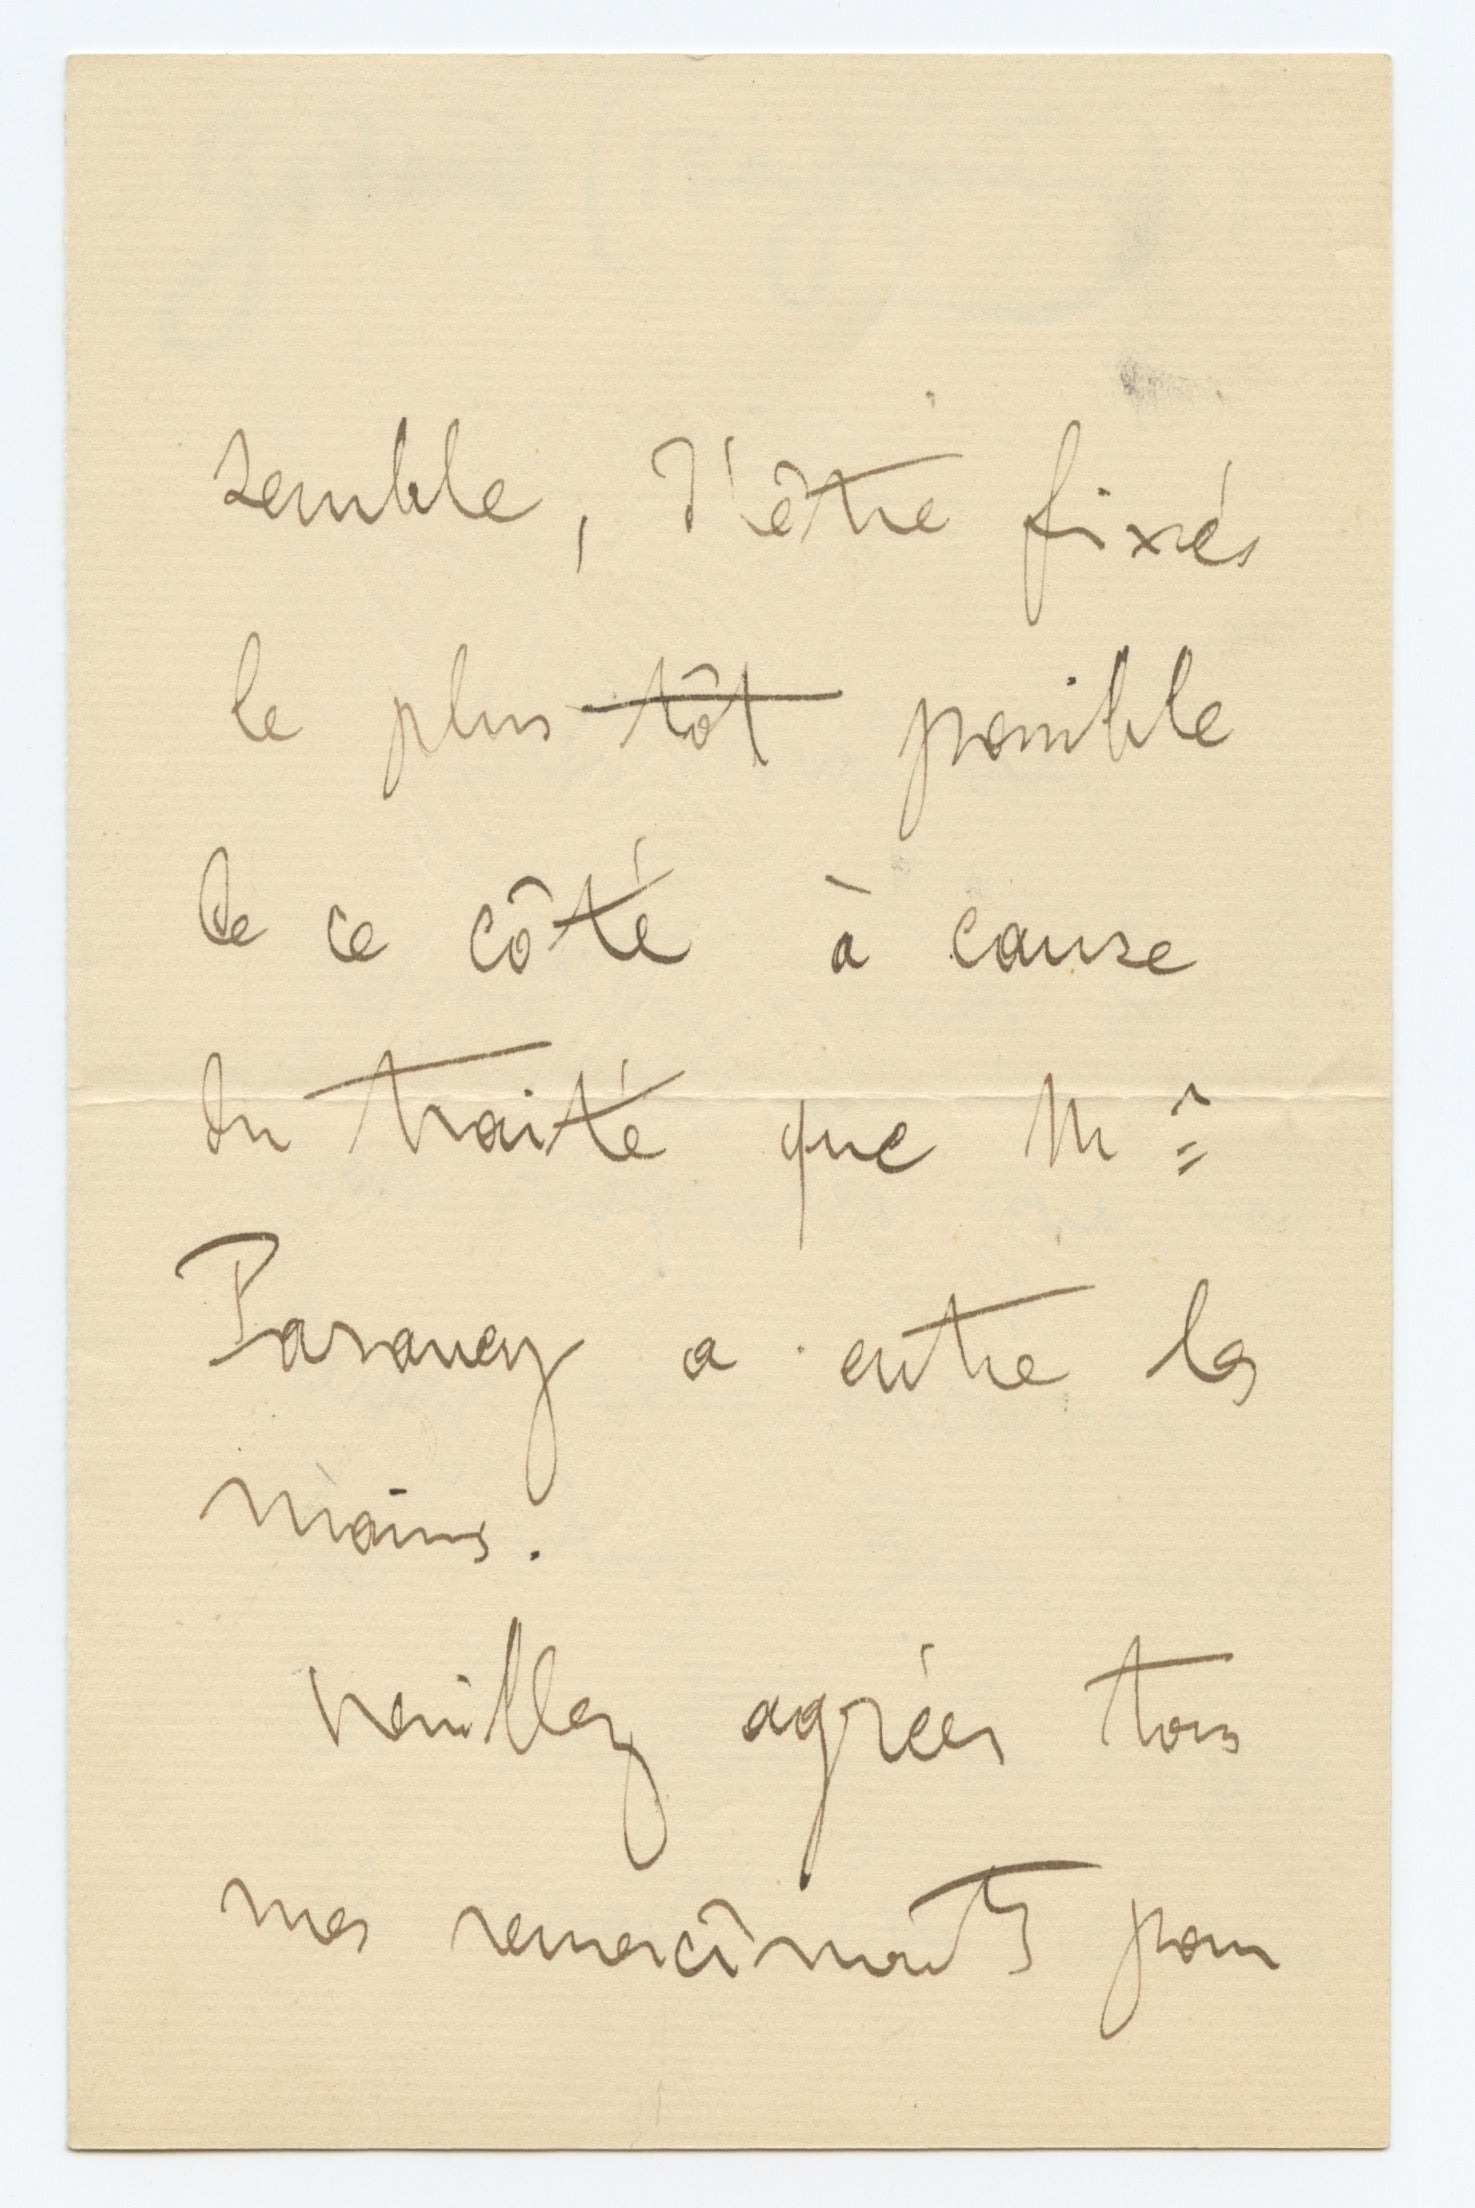 semble, d'être fixés
le plus tôt possible
de ce côté à cause
du traité que Mr
Paravey a entre les
mains.
Veuillez agréer tous
mes remercîments pour